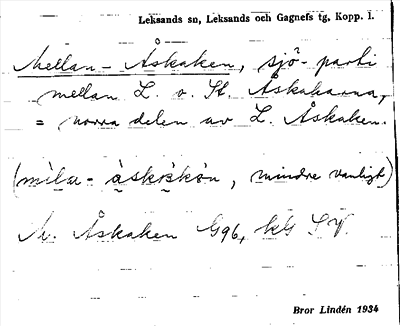 Leksands sn, Leksands och Gagnefs tg, Kopp. l.
Mellan-Åskaken, sjö-parti
mellan L. o. St. Åskakarna,
= norra delen av L. Åskaken.
mindre vanligt)
Åskaken G96, kG SV.
Bror Lindén 1934